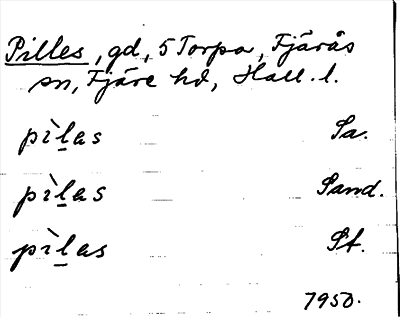 Pilles, gd, 5 Torpa, Fjärås
sn, Fjäre hd, Hall. l.
pìl̲as Sa.
pìl̲as Sand.
pìl̲as St.
7950.